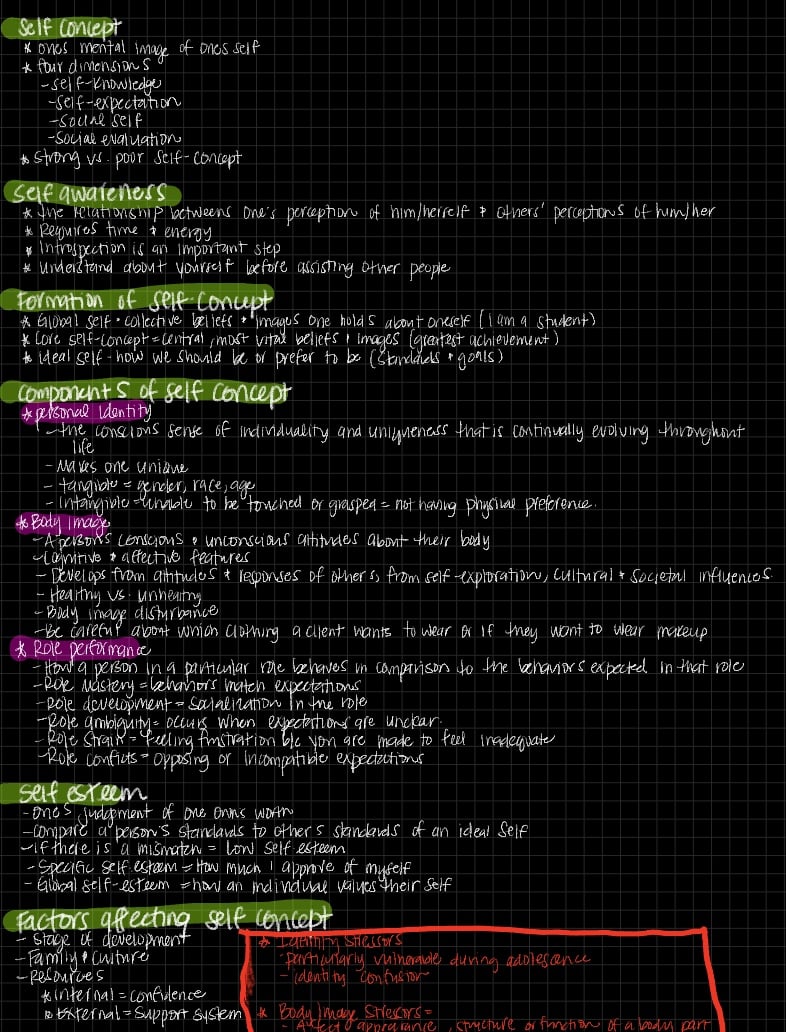 Self Concept
* ones mental image of ones self
* four dimensions
-self-knowledge
-self-expectation
-social self
-social evaluation
* strong vs. poor self-concept
Self awareness
* the relationship betweens one's perception of him/herself + others' perceptions of him/her
* Requires time + energy
* Introspection is an important step
* Understand about yourself before assisting other people
Formation of self-concept
* Global self = collective beliefs + images one holds about oneself (I am a student)
* Core self-concept = central, most vital beliefs + images (greatest achievement)
* ideal self - how we should be or prefer to be (standards + goals)
Components of self concept
* personal identity
- the conscious sense of individuality and uniqueness that is continually evolving throughout
life
- Makes one unique
- tangible = gender, race, age
- Intangible = unable to be touched or grasped = not having physical preference.
* Body image
- A persons conscious + unconscious attitudes about their body
- Cognitive + affective features
- Develops from attitudes + responses of others, from self-exploration, cultural + societal influences
- Healthy vs. unhealthy
- Body image disturbance
- Be careful about which clothing a client wants to wear or if they want to wear makeup
* Role performance
- How a person in a particular role behaves in comparison to the behaviors expected in that role
- Role Mastery = behaviors match expectations
- Role development = socialization in the role
- Role ambiguity = occurs when expectations are unclear
- Role strain = feeling frustration b/c you are made to feel inadequate
- Role conflicts = opposing or incompatible expectations
Self esteem
- ones judgement of one owns worth
- compare a person's standards to others standards of an ideal self
- if there is a mismatch = low self esteem
- Specific self esteem = How much I approve of myself
- Global self-esteem = how an individual values their self
Factors affecting self concept
- stage of development
- Family + culture
- Resources
* internal = confidence
* External = support system
* Identity stressors
- particularly vulnerable during adolescence
- identity confusion
* Body Image Stressors =
- Affect appearance, structure or function of a body part